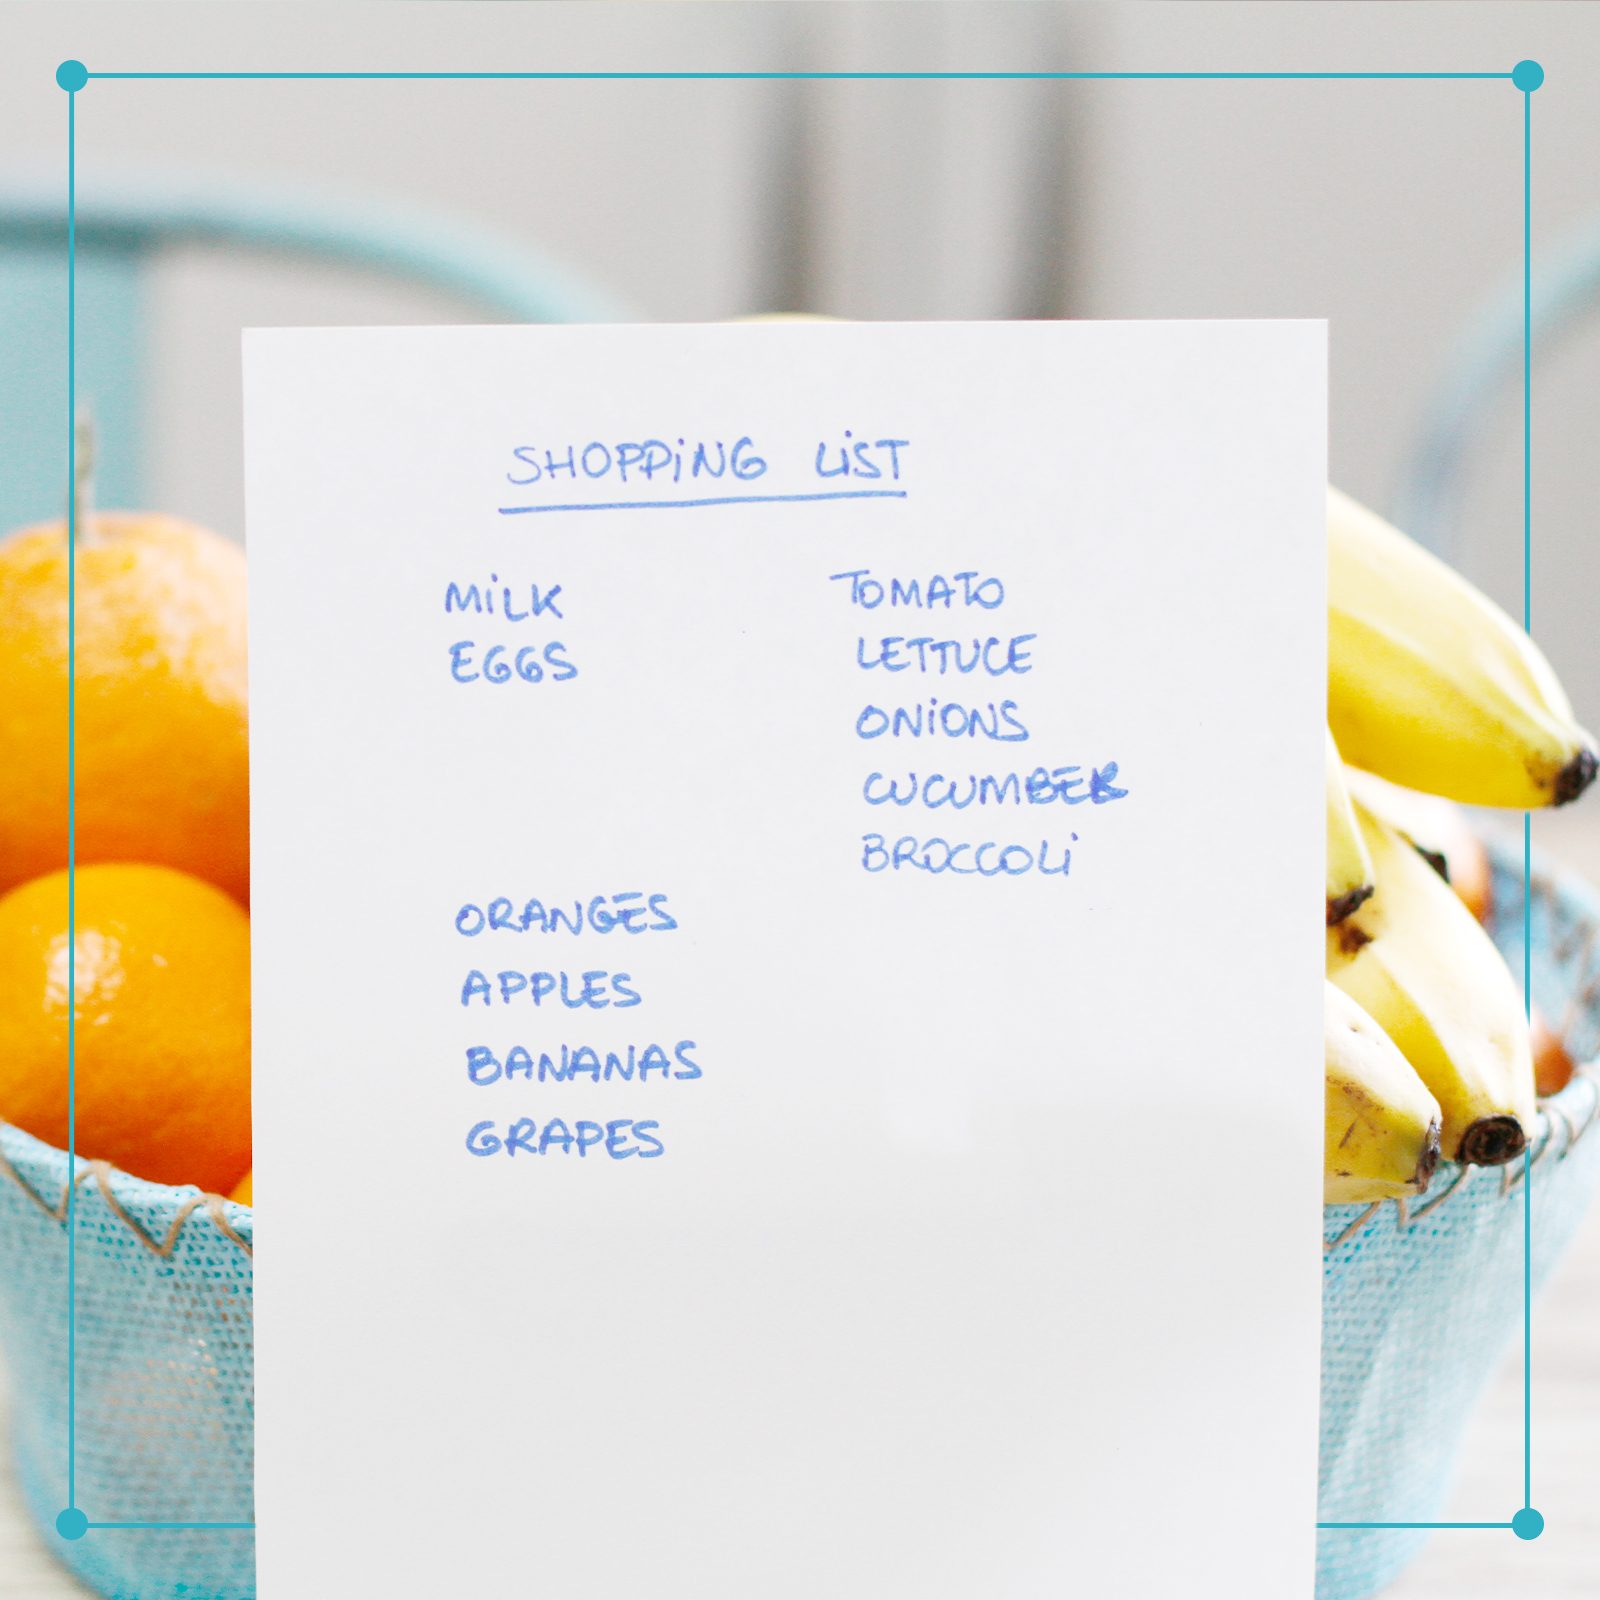 SHOPPING LIST
MILK
EGGS
ORANGES
APPLES
BANANAS
GRAPES
TOMATO
LETTUCE
ONIONS
CUCUMBER
BROCCOLI